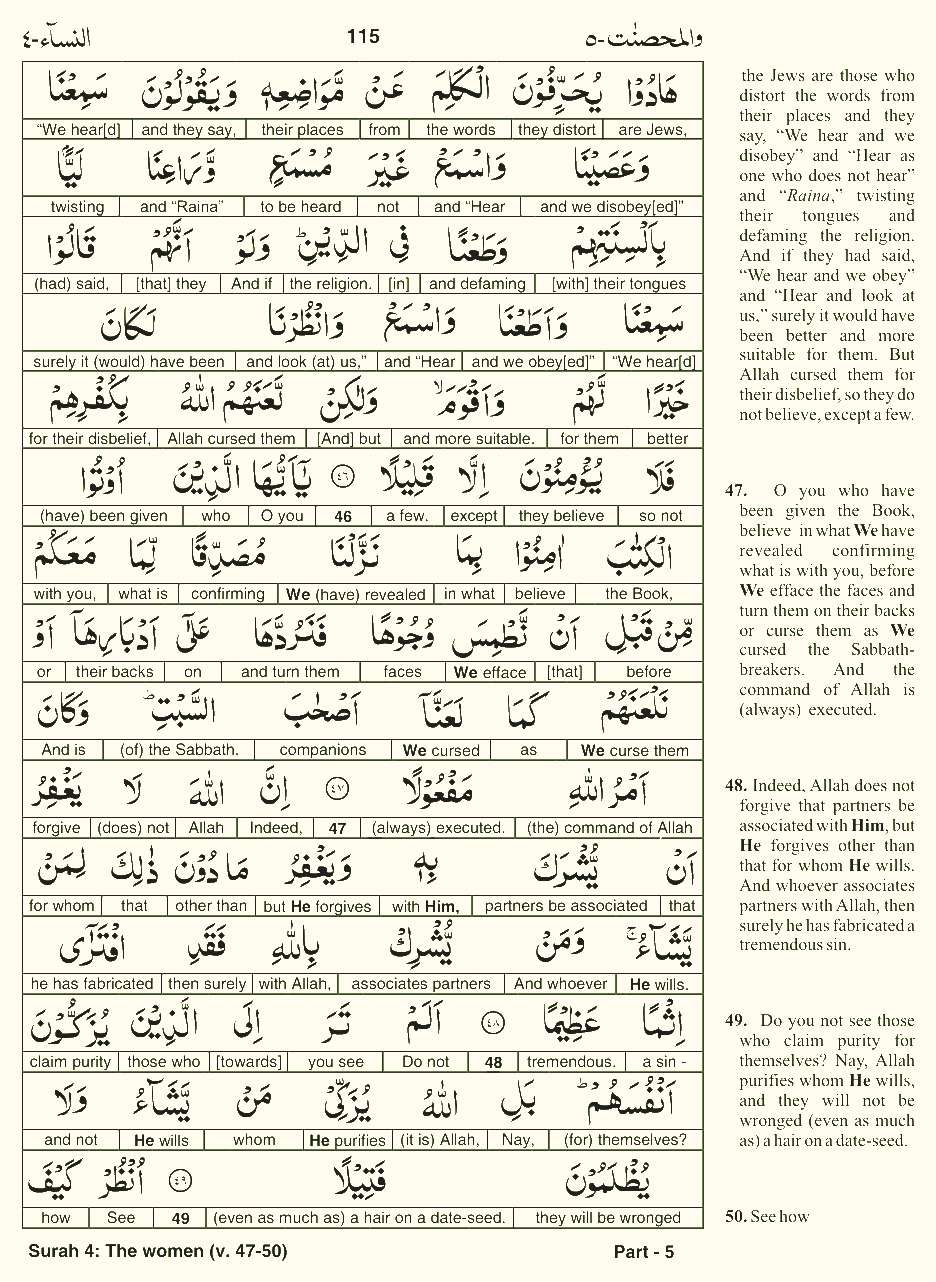 النساء-٤ 115 والمحصنت-٥
هَادُوْا يُحَرِّفُوْنَ الْكَلِمَ عَنْ مَّوَاضِعِهٖ وَيَقُوْلُوْنَ سَمِعْنَا
“We hear[d] and they say, their places from the words they distort are Jews,
وَعَصَيْنَا وَاسْمَعْ غَيْرَ مُسْمَعٍ وَّرَاعِنَا لَيًّۢا
twisting and “Raina” to be heard not and “Hear and we disobey[ed]”
بِاَلْسِنَتِهِمْ وَطَعْنًا فِى الدِّيْنِ ؕ وَلَوْ اَنَّهُمْ قَالُوْا
(had) said, [that] they And if the religion. [in] and defaming [with] their tongues
سَمِعْنَا وَاَطَعْنَا وَاسْمَعْ وَانْظُرْنَا لَـكَانَ
surely it (would) have been and look (at) us,” and “Hear and we obey[ed]” “We hear[d]
خَيْرًا لَّهُمْ وَاَقْوَمَ ۙ وَلٰـكِنْ لَّعَنَهُمُ اللّٰهُ بِكُفْرِهِمْ
for their disbelief, Allah cursed them [And] but and more suitable. for them better
فَلَا يُؤْمِنُوْنَ اِلَّا قَلِيْلًا ٤٦ يٰۤاَيُّهَا الَّذِيْنَ اُوْتُوا
(have) been given who O you 46 a few. except they believe so not
الْكِتٰبَ اٰمِنُوْا بِمَا نَزَّلْنَا مُصَدِّقًا لِّمَا مَعَكُمْ
with you, what is confirming We (have) revealed in what believe the Book,
مِّنْ قَبْلِ اَنْ نَّطْمِسَ وُجُوْهًا فَنَرُدَّهَا عَلٰٓى اَدْبَارِهَاۤ اَوْ
or their backs on and turn them faces We efface [that] before
نَلْعَنَهُمْ كَمَا لَعَنَّاۤ اَصْحٰبَ السَّبْتِ ؕ وَكَانَ
And is (of) the Sabbath. companions We cursed as We curse them
اَمْرُ اللّٰهِ مَفْعُوْلًا ٤٧ اِنَّ اللّٰهَ لَا يَغْفِرُ
forgive (does) not Allah Indeed, 47 (always) executed. (the) command of Allah
اَنْ يُّشْرَكَ بِهٖ وَيَغْفِرُ مَا دُوْنَ ذٰلِكَ لِمَنْ
for whom that other than but He forgives with Him, partners be associated that
يَّشَآءُ ۚ وَمَنْ يُّشْرِكْ بِاللّٰهِ فَقَدِ افْتَرٰۤى
he has fabricated then surely with Allah, associates partners And whoever He wills.
اِثْمًا عَظِيْمًا ٤٨ اَلَمْ تَرَ اِلَى الَّذِيْنَ يُزَكُّوْنَ
claim purity those who [towards] you see Do not 48 tremendous. a sin -
اَنْفُسَهُمْ ؕ بَلِ اللّٰهُ يُزَكِّىْ مَنْ يَّشَآءُ وَلَا
and not He wills whom He purifies (it is) Allah, Nay, (for) themselves?
يُظْلَمُوْنَ فَتِيْلًا ٤٩ اُنْظُرْ كَيْفَ
how See 49 (even as much as) a hair on a date-seed. they will be wronged
the Jews are those who
distort the words from
their places and they
say, “We hear and we
disobey” and “Hear as
one who does not hear”
and “Raina,” twisting
their tongues and
defaming the religion.
And if they had said,
“We hear and we obey”
and “Hear and look at
us,” surely it would have
been better and more
suitable for them. But
Allah cursed them for
their disbelief, so they do
not believe, except a few.
47. O you who have
been given the Book,
believe in what We have
revealed confirming
what is with you, before
We efface the faces and
turn them on their backs
or curse them as We
cursed the Sabbath-
breakers. And the
command of Allah is
(always) executed.
48. Indeed, Allah does not
forgive that partners be
associated with Him, but
He forgives other than
that for whom He wills.
And whoever associates
partners with Allah, then
surely he has fabricated a
tremendous sin.
49. Do you not see those
who claim purity for
themselves? Nay, Allah
purifies whom He wills,
and they will not be
wronged (even as much
as) a hair on a date-seed.
50. See how
Surah 4: The women (v. 47-50) Part - 5